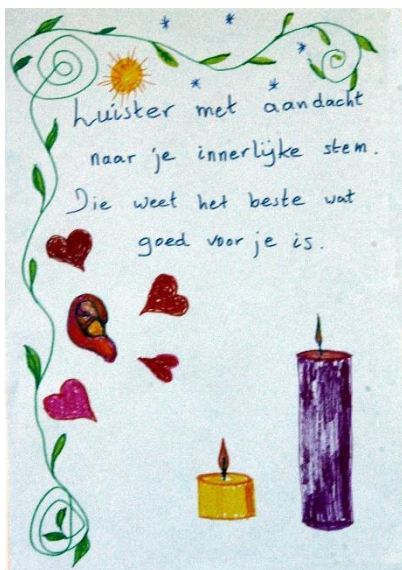 Luister met aandacht
naar je innerlijke stem.
Die weet het beste wat
goed voor je is.